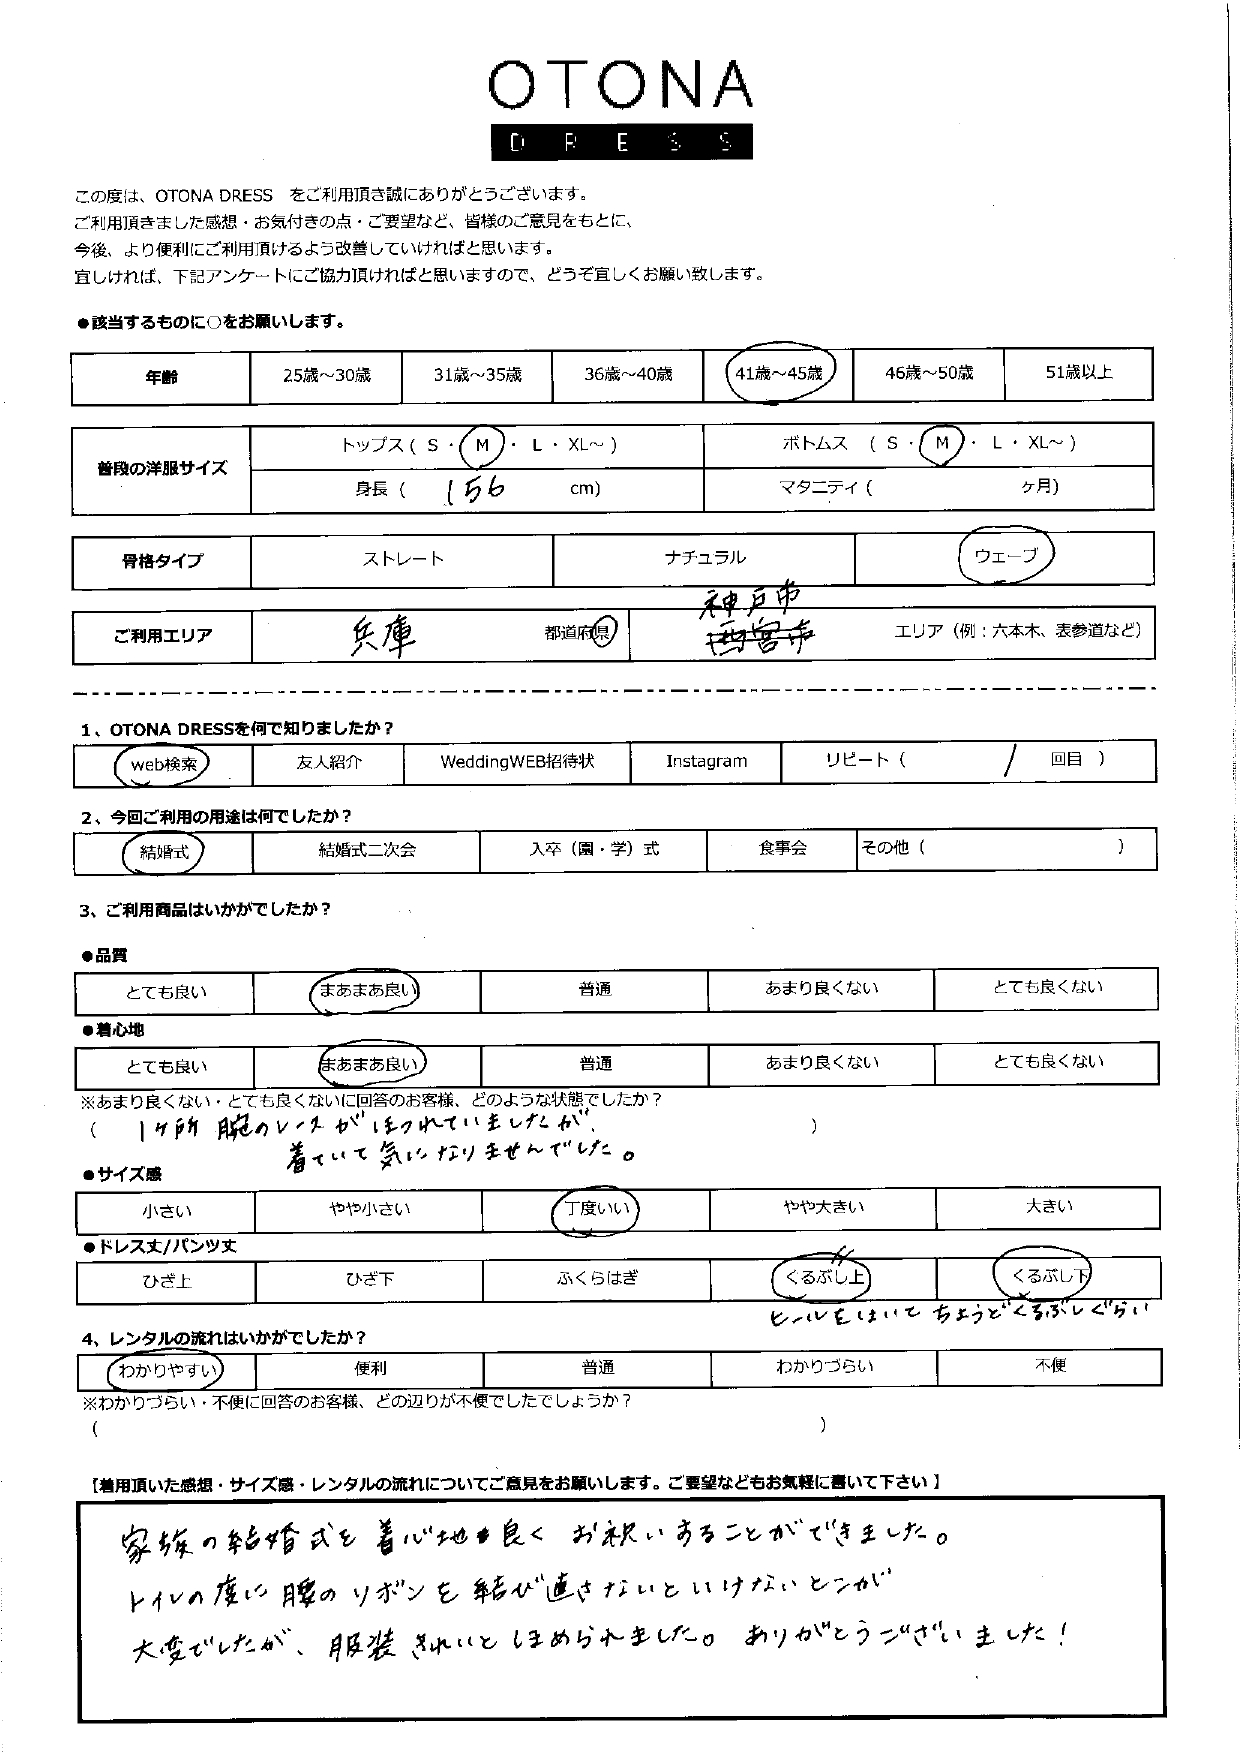 OTONA
DRESS
この度は、OTONA DRESS をご利用頂き誠にありがとうございます。
ご利用頂きました感想・お気付きの点・ご要望など、皆様のご意見をもとに、
今後、より便利にご利用頂けるよう改善していければと思います。
宜しければ、下記アンケートにご協力頂ければと思いますので、どうぞ宜しくお願い致します。
●該当するものに○をお願いします。
年齢 25歳～30歳 31歳～35歳 36歳～40歳 41歳～45歳 46歳～50歳 51歳以上
普段の洋服サイズ トップス( S ・ M ・ L ・ XL～ ) ボトムス ( S ・ M ・ L ・ XL～ )
身長 ( 156 cm) マタニティ ( ヶ月)
骨格タイプ ストレート ナチュラル ウェーブ
神戸市
ご利用エリア 兵庫 都道府県 西宮市 エリア（例：六本木、表参道など）
1、OTONA DRESSを何で知りましたか？
web検索 友人紹介 WeddingWEB招待状 Instagram リピート ( / 回目 )
2、今回ご利用の用途は何でしたか？
結婚式 結婚式二次会 入卒（園・学）式 食事会 その他 ( )
3、ご利用商品はいかがでしたか？
●品質
とても良い まあまあ良い 普通 あまり良くない とても良くない
●着心地
とても良い まあまあ良い 普通 あまり良くない とても良くない
※あまり良くない・とても良くないに回答のお客様、どのような状態でしたか？
( 1ヶ所 腕のレースがほつれていましたが、 )
着ていて気になりませんでした。
●サイズ感
小さい やや小さい 丁度いい やや大きい 大きい
●ドレス丈/パンツ丈
ひざ上 ひざ下 ふくらはぎ くるぶし上 くるぶし下
ヒールをはいてちょうどくるぶしぐらい
4、レンタルの流れはいかがでしたか？
わかりやすい 便利 普通 わかりづらい 不便
※わかりづらい・不便に回答のお客様、どの辺りが不便でしたでしょうか？
( )
【着用頂いた感想・サイズ感・レンタルの流れについてご意見をお願いします。ご要望などもお気軽に書いて下さい】
家族の結婚式を着心地良くお祝いすることができました。
トイレの度に腰のリボンを結び直さないといけないとこが
大変でしたが、服装きれいとほめられました。ありがとうございました！